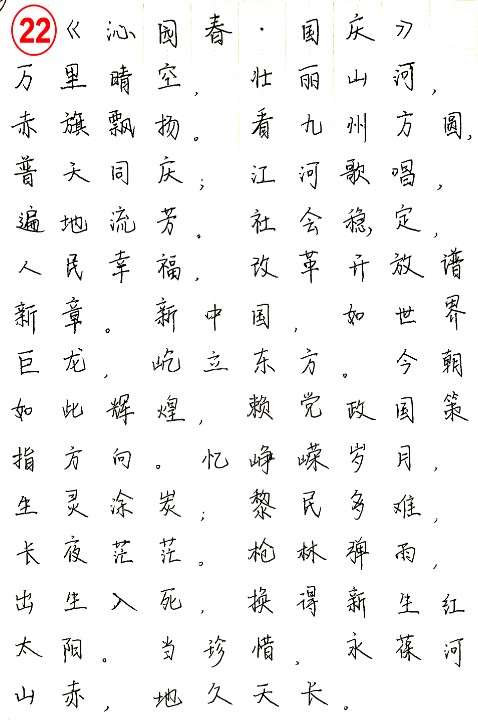 22《沁园春·国庆》
万里晴空，壮丽山河，
赤旗飘扬。看九州方圆，
普天同庆；江河歌唱，
遍地流芳。社会稳定，
人民幸福，改革开放谱
新章。新中国，如世界
巨龙，屹立东方。今朝
如此辉煌，赖党政国策
指方向。忆峥嵘岁月，
生灵涂炭；黎民多难，
长夜茫茫。枪林弹雨，
出生入死，换得新生红
太阳。当珍惜，永葆河
山赤，地久天长。